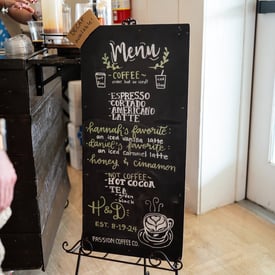 DECAF
available!
Menu
COFFEE
order hot or iced!
ESPRESSO
CORTADO
AMERICANO
LATTE
hannah's favorite:
an iced vanilla latte
daniel's favorite:
an iced caramel latte
honey & cinnamon
NOT COFFEE
HOT COCOA
TEA
green
black
H&D:
EST. 8-19-24
PASSION COFFEE CO.